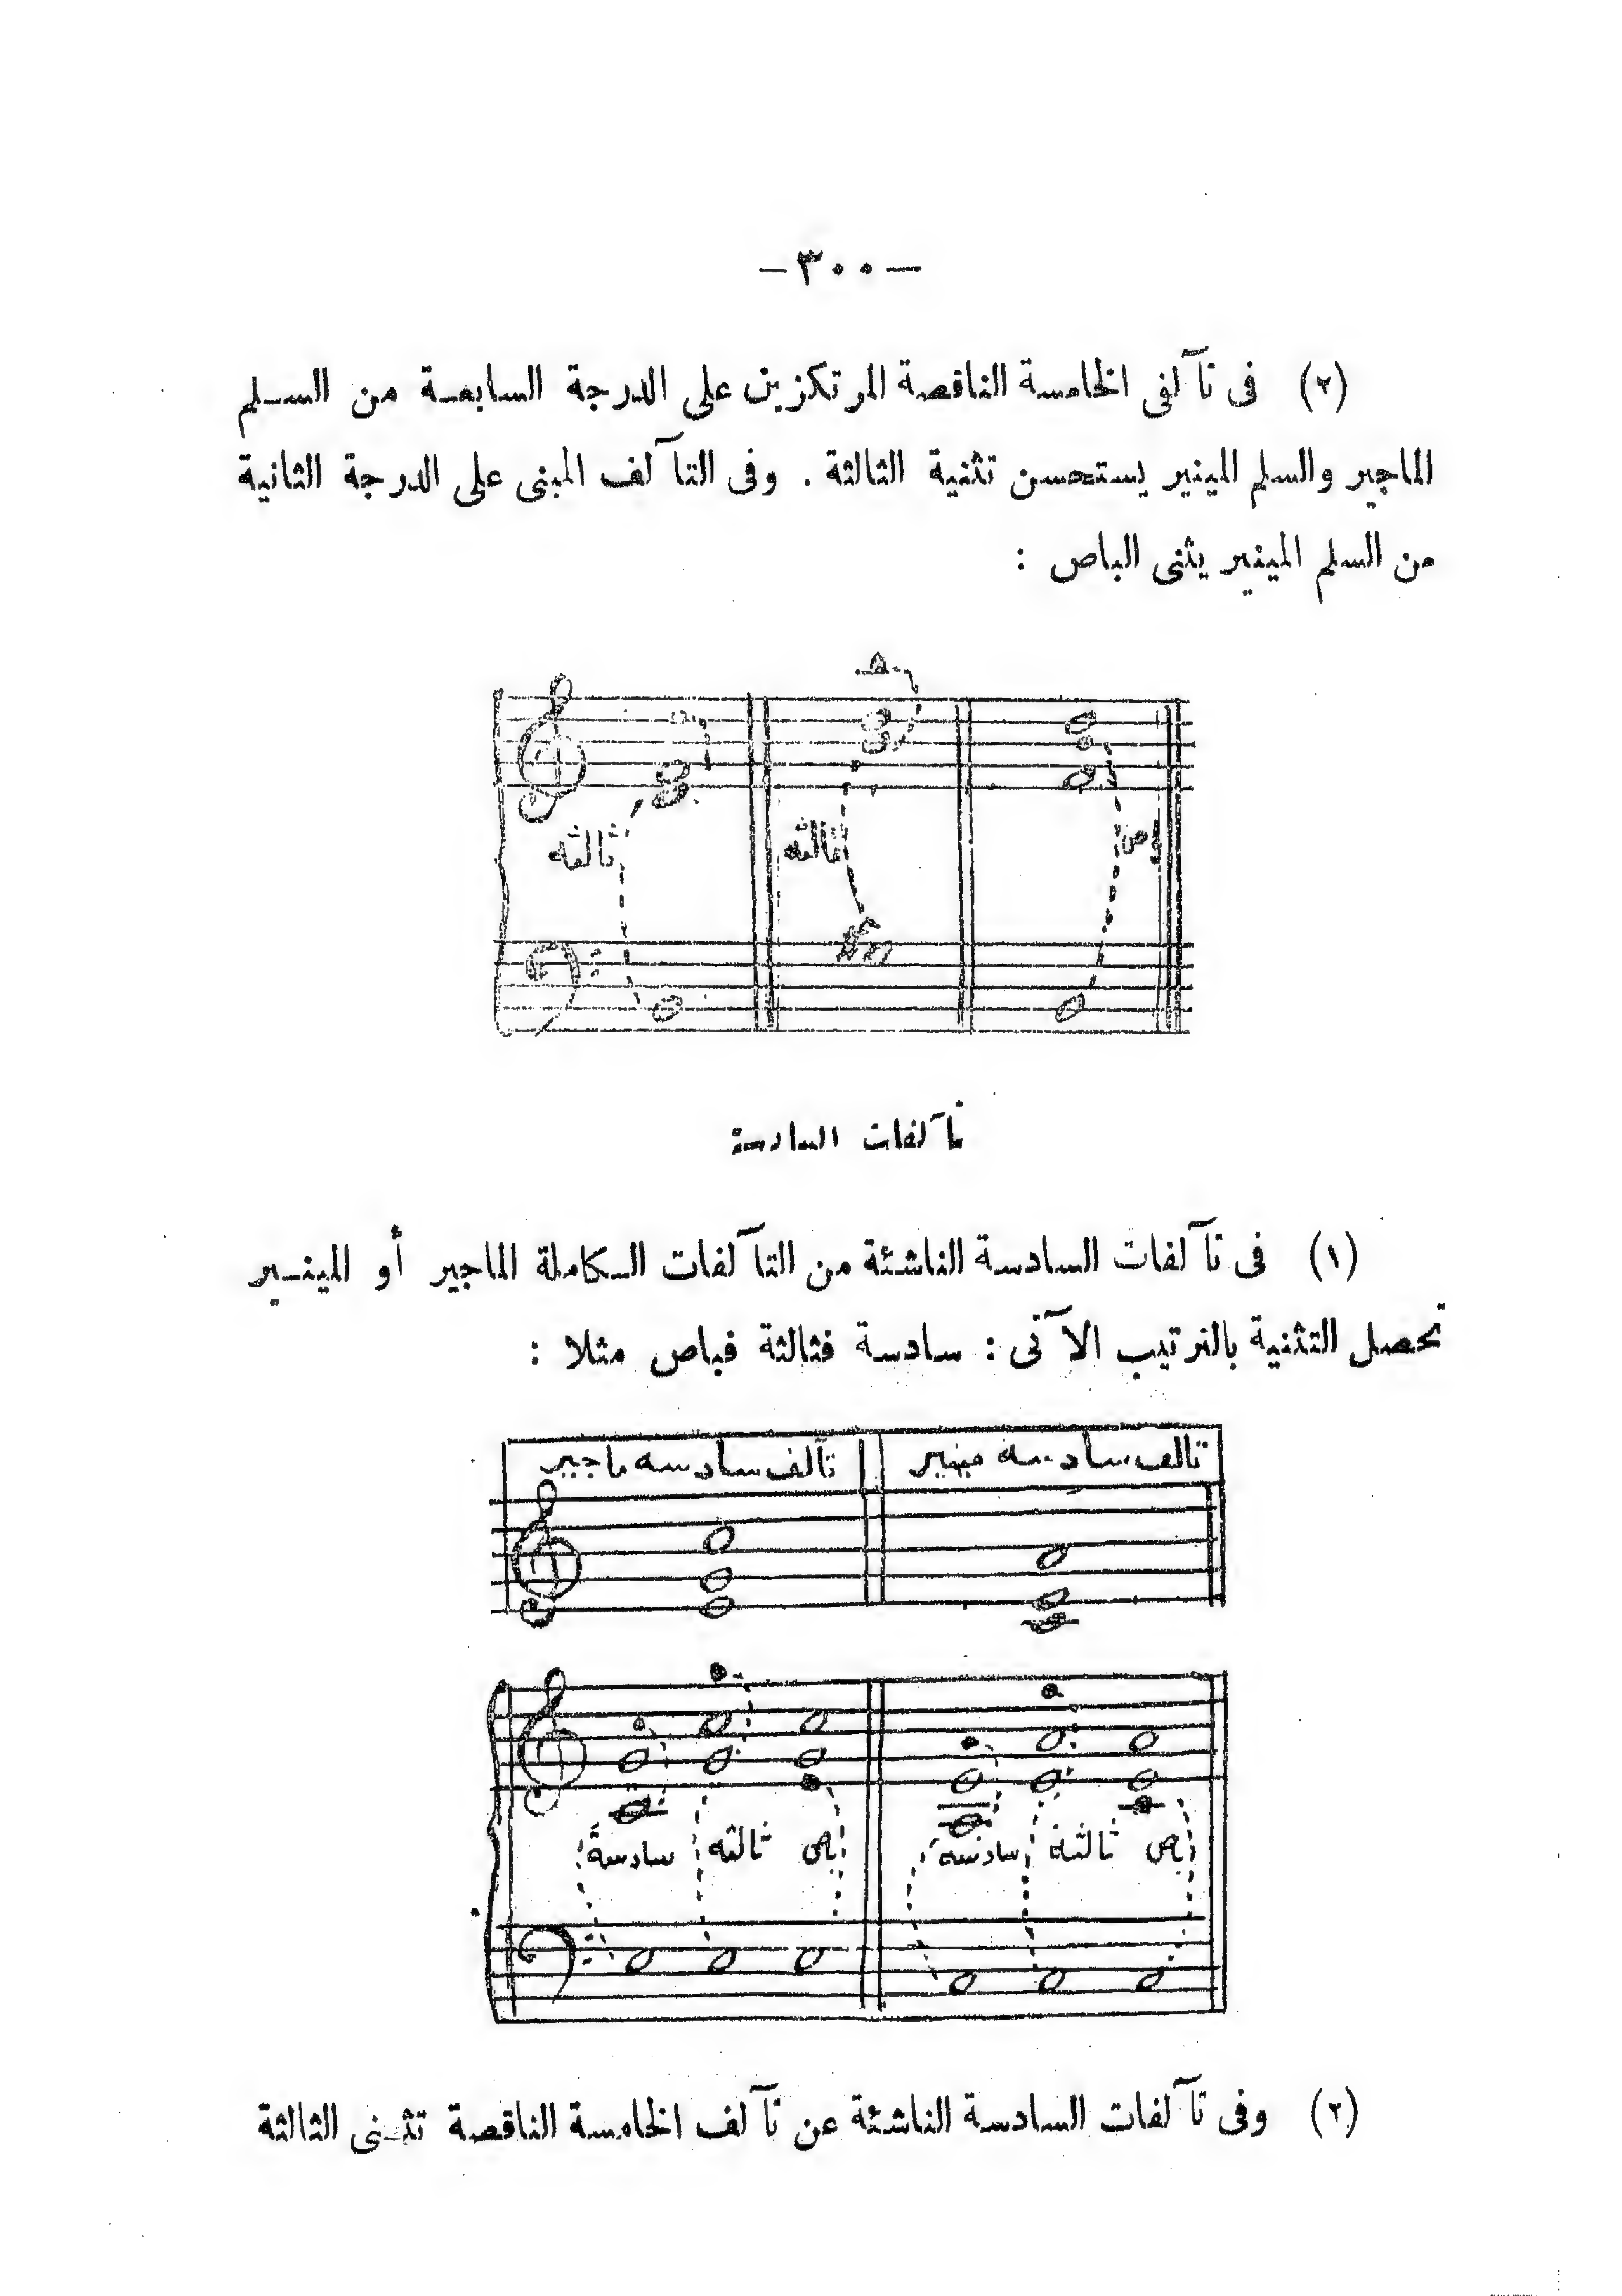 — ٣٠٠ —
(٢) فى تآلفى الخامسة الناقصة المرتكزين على الدرجة السابعة من السلم
الماجير والسلم المينير يستحسن تثنية الثالثة . وفى التآلف المبنى على الدرجة الثانية
من السلم المينير يثنى الباص :
ثالثه ثالثه
تآلفات السادسة
(١) فى تآلفات السادسة الناشئة من التآلفات الكاملة الماجير أو المينير
تحصل التثنية بالترتيب الآتى : سادسة فثالثة فباص مثلا :
تآلف سادسه ماجير تالف سادسه مينير
سادسة ثالثه باص سادسه ثالثة باص
(٢) وفى تآلفات السادسة الناشئة عن تآلف الخامسة الناقصة تثنى الثالثة